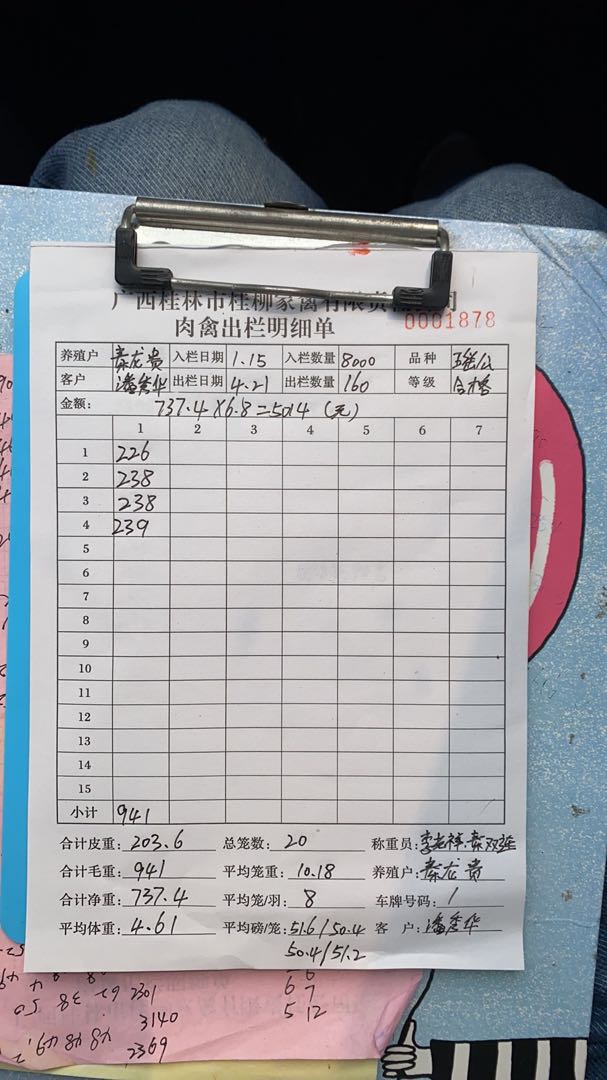 广西桂林市桂柳家禽有限责任公司
肉禽出栏明细单
0001878
养殖户 秦龙贵 入栏日期 1.15 入栏数量 8000 品种
客户 潘秀华 出栏日期 4.21 出栏数量 160 等级 合格
金额: 737.4×6.8=5014(元)
1 2 3 4 5 6 7
1 226
2 238
3 238
4 239
5
6
7
8
9
10
11
12
13
14
15
小计 941
合计皮重: 203.6 总笼数: 20 称重员:
合计毛重: 941 平均笼重: 10.18 养殖户: 秦龙贵
合计净重: 737.4 平均笼/羽: 8 车牌号码: 1
平均体重: 4.61 平均磅/笼: 51.6/50.4 客 户: 潘秀华
50.4/51.2
6 7
5 12
2301
3140
2369